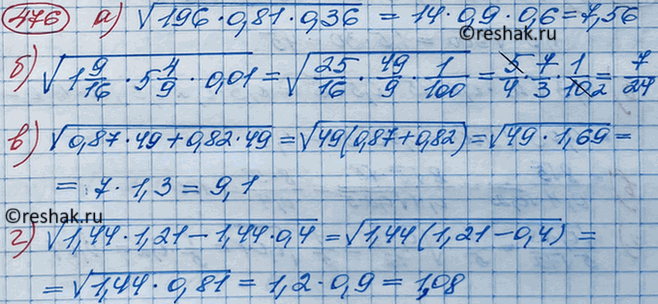 476 а) √196·0,81·0,36 = 14·0,9·0,6=7,56
©reshak.ru
б) √1 9/16 · 5 4/9 · 0,01 = √25/16 · 49/9 · 1/100 = 5/4 · 7/3 · 1/10 2 = 7/24
в) √0,87·49+0,82·49 = √49(0,87+0,82) = √49·1,69 =
= 7·1,3 = 9,1
©reshak.ru
г) √1,44·1,21-1,44·0,4 = √1,44(1,21-0,4) =
= √1,44·0,81 = 1,2·0,9 = 1,08
©reshak.ru